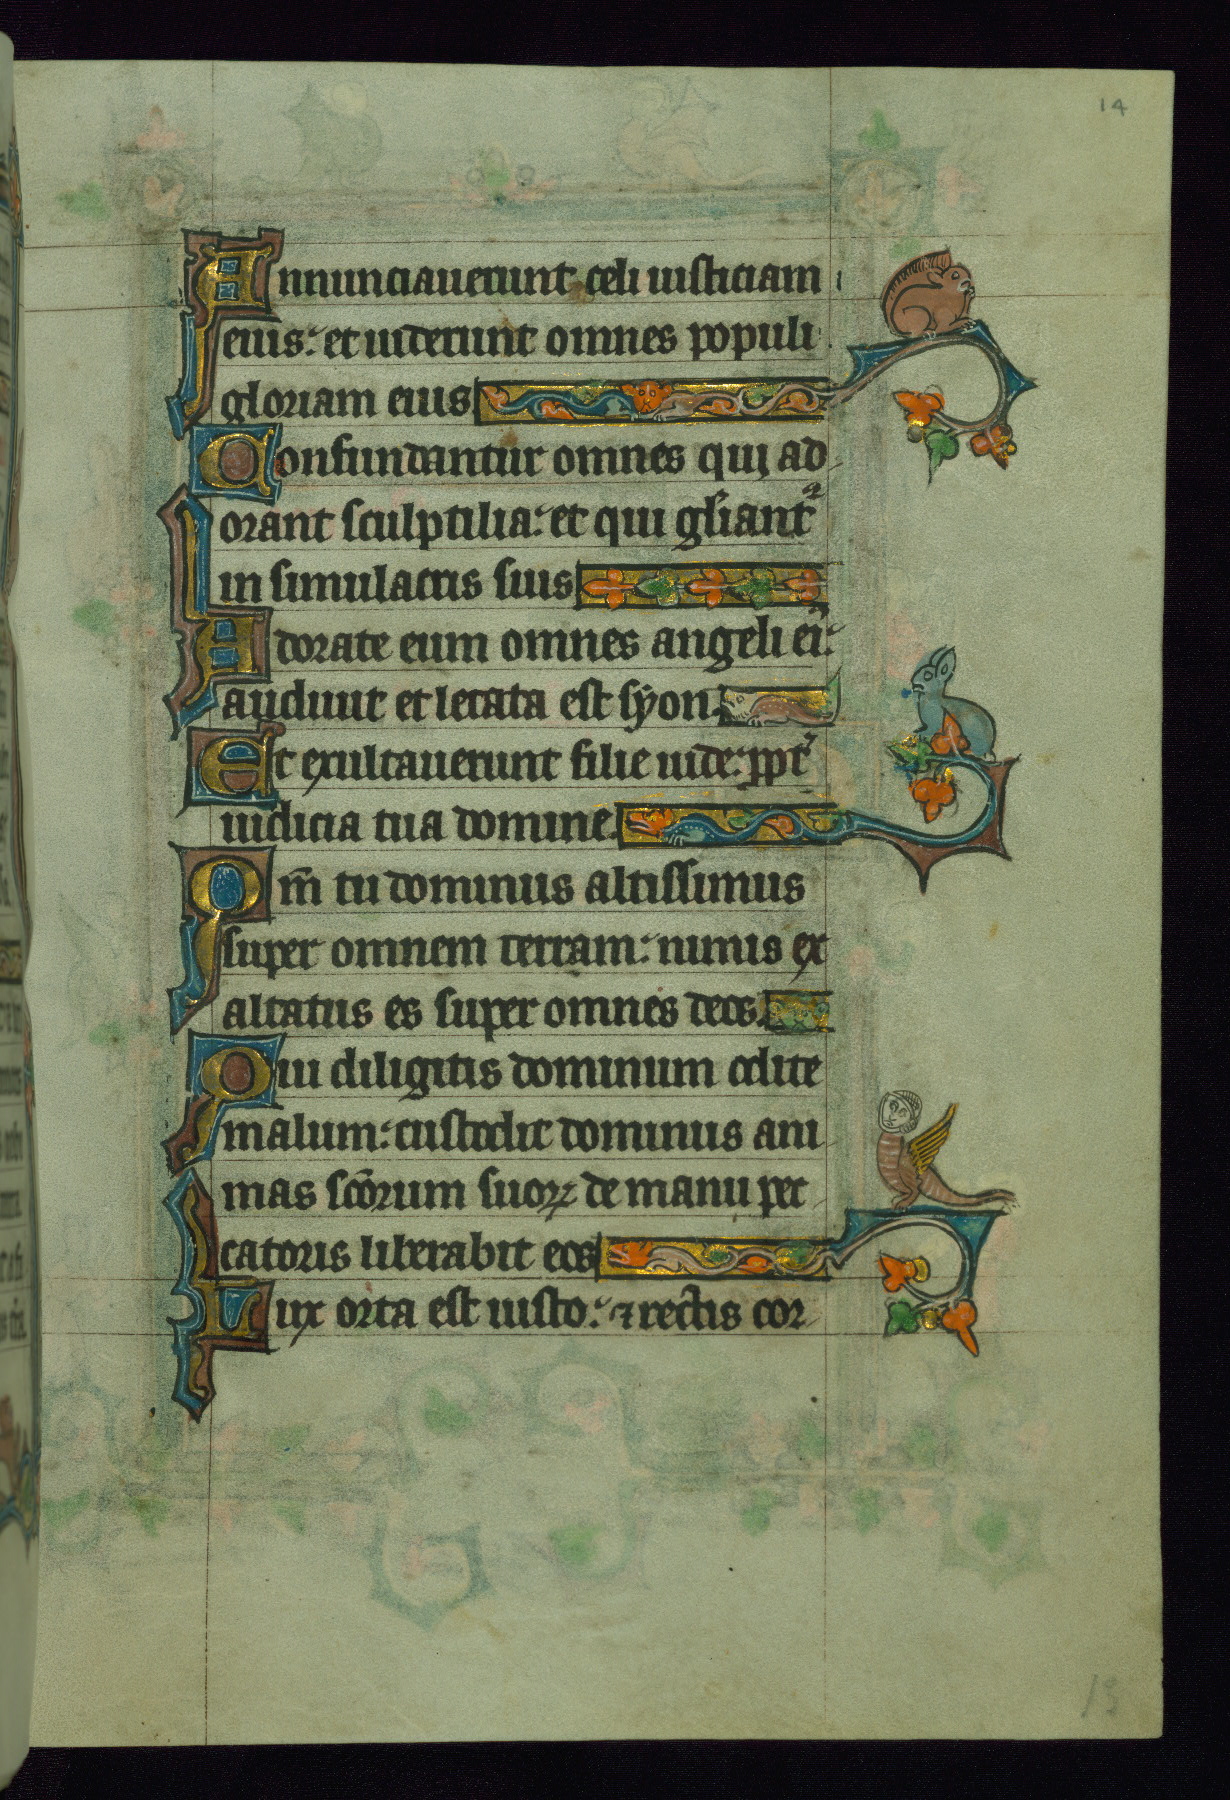 14
Annunciauerunt celi iusticiam
eius: et uiderunt omnes populi
gloriam eius
Confundantur omnes qui ad
orant sculptilia: et qui gl̄iantᵃ
in simulacris suis
Adorate eum omnes angeli ei᾽:
audiuit et letata est syon.
Et exultauerunt filie iude: ppt᾽
iudicia tua domine.
Qm̄ tu dominus altissimus
super omnem terram: nimis ex
altatus es super omnes deos.
Qui diligitis dominum odite
malum: custodit dominus ani
mas sc̄orum suoꝝ de manu pec
catoris liberabit eos
Lux orta est iusto: ⁊ rectis cor
15